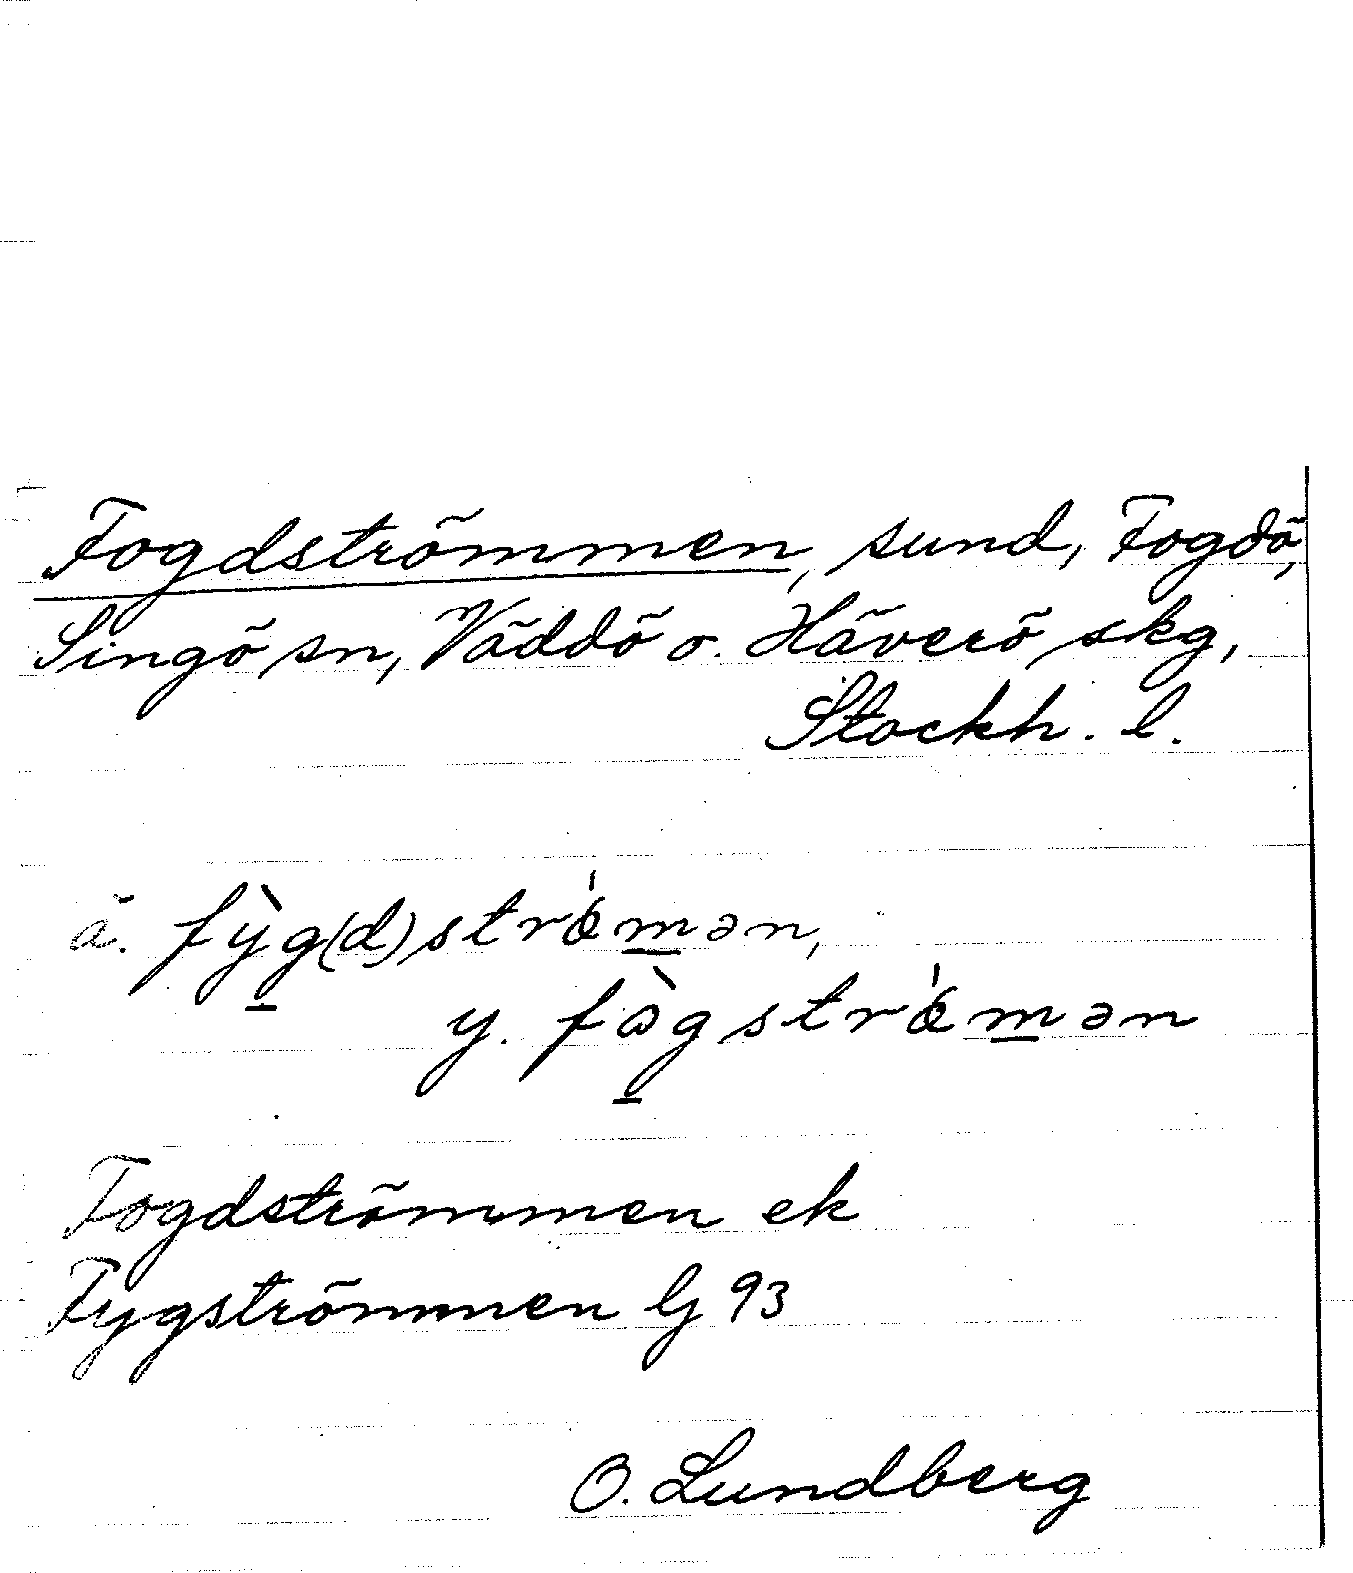 Fogdströmmen, sund, Fogdö,
Singö sn, Väddö o. Häverö skg,
Stockh. l.
ä. fỳg(d)strǿmən,
y. fògstrǿmən
Fogdströmmen ek
Fygströmmen Gj 93
O. Lundberg